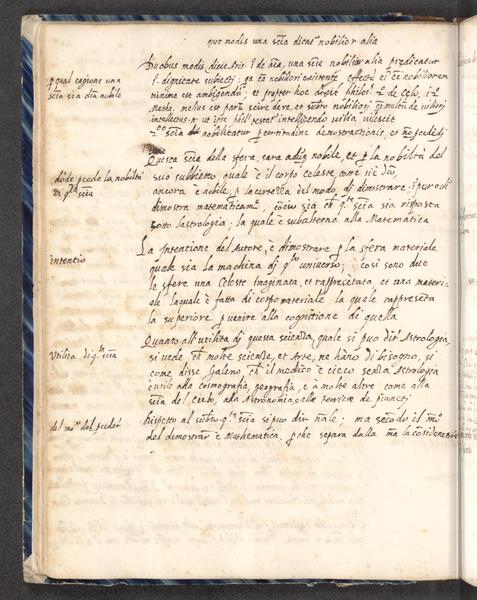 quot modis una sc͠ia dicat͠ nobilior alia
p͠ qual cagione una
sc͠ia sia d͠ta nobile
Duobus modis, dicit Aris. p͠o de a͠ia, una sc͠ia nobilior alia predicatur
p͠o dignitate subiecti; q͠a c͠u nobiliori existente effectu ei͠ e͠e nobiliorem
minime est ambigendu͠; et propter hoc dixit philos͠
Meth. melius est paru͠ scire de re, et subt͠o nobiliori q͠ multu͠ de viliori
intellectus n͠ ut ip͠se phil͠ testat͠ intelligendo vilia vilescit
2͠do sc͠ia nobilitatur p͠ certitudine demostrationis, et
do͠de p͠cede la nobiltà
di q͠sta sc͠ia
Questa sc͠ia della sfera, sarà adu͠q nobile, et p͠ la nobiltà del
suo subbietto quale è il corpo celeste, come si è d͠to,
ancora è nobile, p͠ la certezza del modo, di dimostrare, i͠peroch͠
dimostra matematicam͠te, co͠cio sia ch͠ q͠sta sc͠ia sia riposta
sotto l'astrologia; la quale è subalterna alla Matematica
intentio
La Intentione del Autore, è dimostrare p͠ la sfera materiale
quale sia la machina di q͠sto universo; cosi sono due
le sfere una Celeste imaginata, et rappresetata, et una materi-
ale laquale è fatta di corpo materiale la quale rappreseta
la superiore p͠ venire alla cognitione di quella
Utilità di q͠sta sc͠ia
Quanto all'utilità di questa scienza, quale si può dir͠ Astrologia,
si vede ch͠ molte scienze, et Arte, ne ha͠no di bisogno, si
come disse Galeno, ch͠ il medico è cieco senza Astrologia
è utile alla cosmografia, geografia, e à molte altre come alla
sc͠ia del Cielo, alla Astronomia, alle teoriche de pianeti
del mo͠ del proceder͠
Rispetto al subt͠o q͠sta sc͠ia si può dir͠ n͠ale; ma seco͠do il mo͠
del dimostrar͠ è Mathematica, p͠che separa dalla m͠a la co͠sideratione